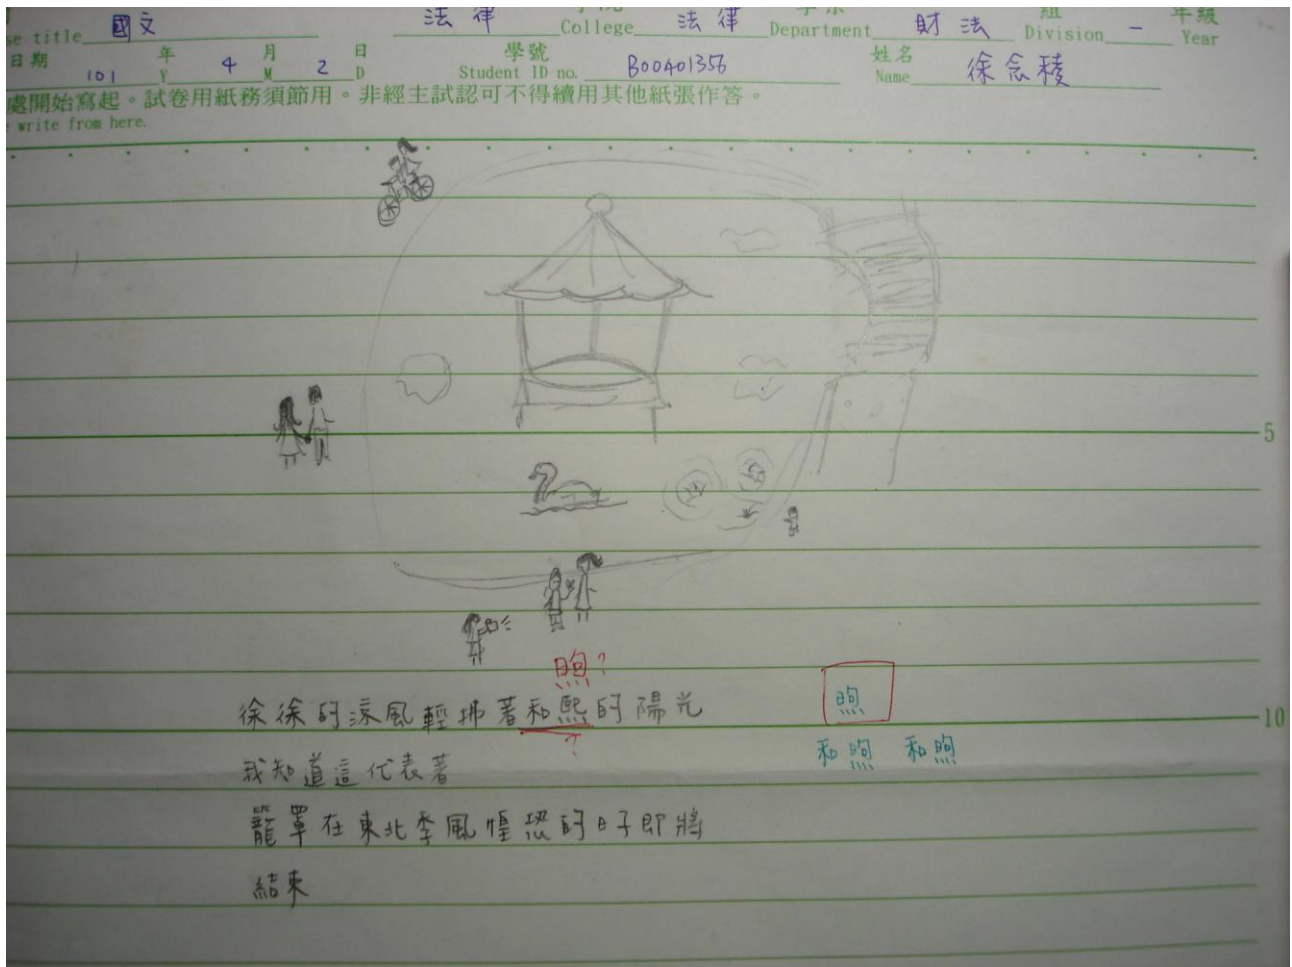 se title 國文 法律 College 法律 Department 財法 組 Division 一 年級 Year
日期 101 年 Y 4 月 M 2 日 D 學號 Student ID no. B00401356 姓名 Name 徐念稜
處開始寫起。試卷用紙務須節用。非經主試認可不得續用其他紙張作答。
write from here.
5
煦?
徐徐的涼風輕拂著和熙的陽光 煦 10
?
我知道這代表著 和煦 和煦
籠罩在東北季風惶恐的日子即將
結束